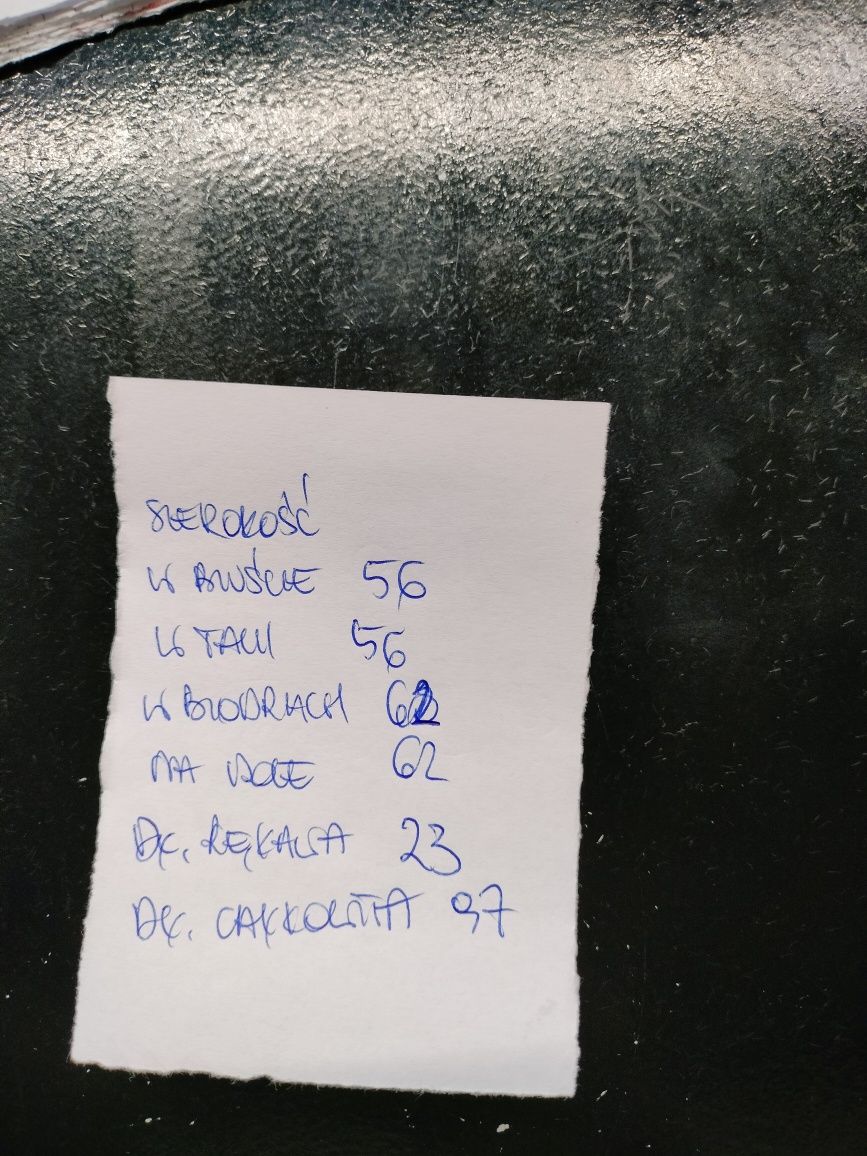 SZEROKOŚĆ
W BIUŚCIE 56
W TALII 56
W BIODRACH 62
NA DOLE 62
DŁ. RĘKAWA 23
DŁ. CAŁKOWITA 97